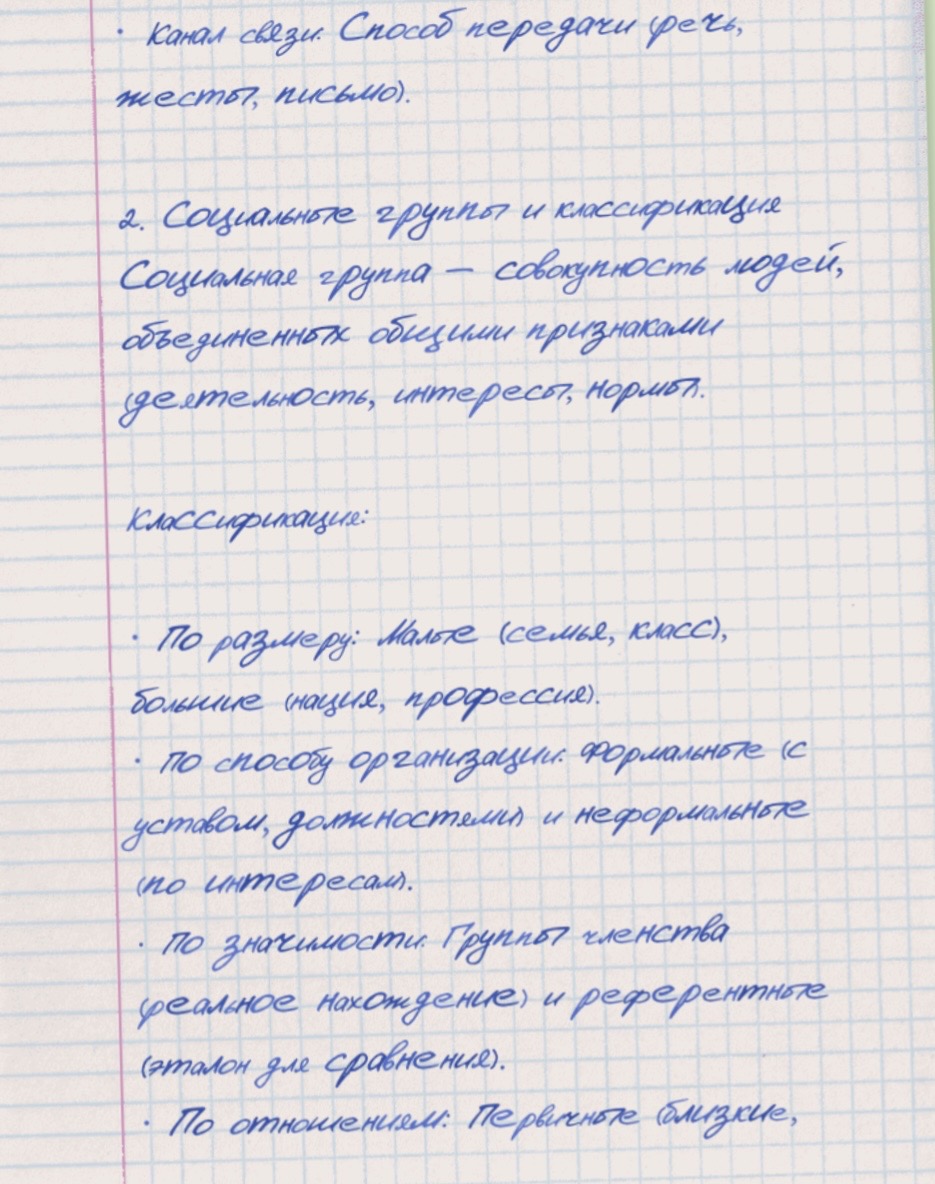 · Канал связи: Способ передачи (речь,
жесты, письмо).
2. Социальные группы и классификация
Социальная группа — совокупность людей,
объединенных общими признаками
(деятельность, интересы, нормы).
Классификация:
· По размеру: Малые (семья, класс),
большие (нация, профессия).
· По способу организации: Формальные (с
уставом, должностями) и неформальные
(по интересам).
· По значимости: Группы членства
(реальное нахождение) и референтные
(эталон для сравнения).
· По отношениям: Первичные (близкие,